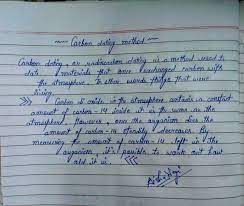 Carbon dating method
Carbon dating, or radiocarbon dating is a method used to
date materials that once exchanged carbon with
the atmosphere. In other words things that were
living.
Carbon di oxide in the atmosphere contains a constant
amount of carbon-14 inside it is the same as the
atmosphere. However, once the organism dies the
amount of carbon-14 steadily decreases. By
measuring the amount of carbon-14 left in the
organism, it's possible to work out how
old it is.